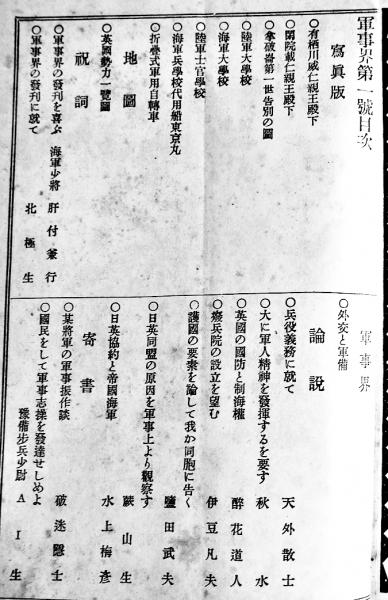 軍事界第一號目次
寫眞版
○有栖川威仁親王殿下
○閑院載仁親王殿下
○拿破崙第一世告別の圖
○陸軍大學校
○海軍大學校
○陸軍士官學校
○海軍兵學校代用船東京丸
○折疊式軍用自轉車
地圖
○英國勢力一覽圖
祝詞
○軍事界の發刊を喜ぶ 海軍少將 肝付兼行
○軍事界の發刊に就て 北極生
軍事界
○外交と軍備
論説
○兵役義務に就て 天外散士
○大に軍人精神を發揮するを要す 秋水
○英國の國防と制海權 醉花道人
○癈兵院の設立を望む 伊豆凡夫
○護國の要素を論して我か同胞に告く 鹽田武夫
○日英同盟の原因を軍事上より觀察す 蕨山生
○日英協約と帝國海軍 水上梅彦
寄書
○某將軍の軍事振作談 破迷隱士
○國民をして軍事志操を發達せしめよ 豫備步兵少尉 AI生